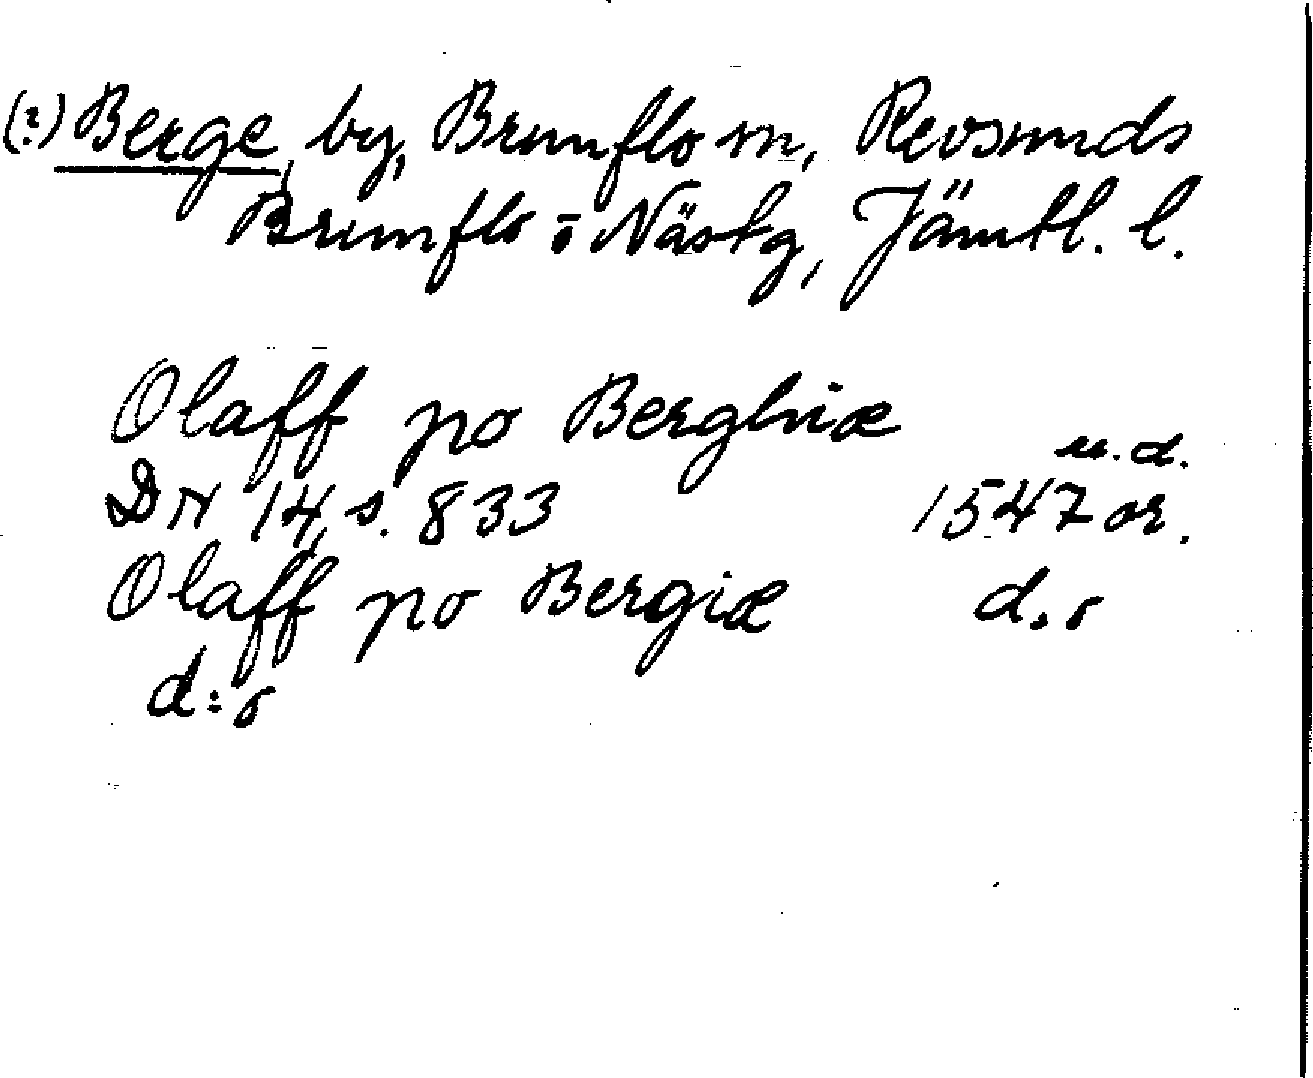 (?) Berge, by, Brunflo sn, Revsunds
Brunflo o Näskg, Jämtl. l.
Olaff po Berghiæ
u.d.
DN 14, s. 833 1547 or.
Olaff po Bergiæ d.o
d:o